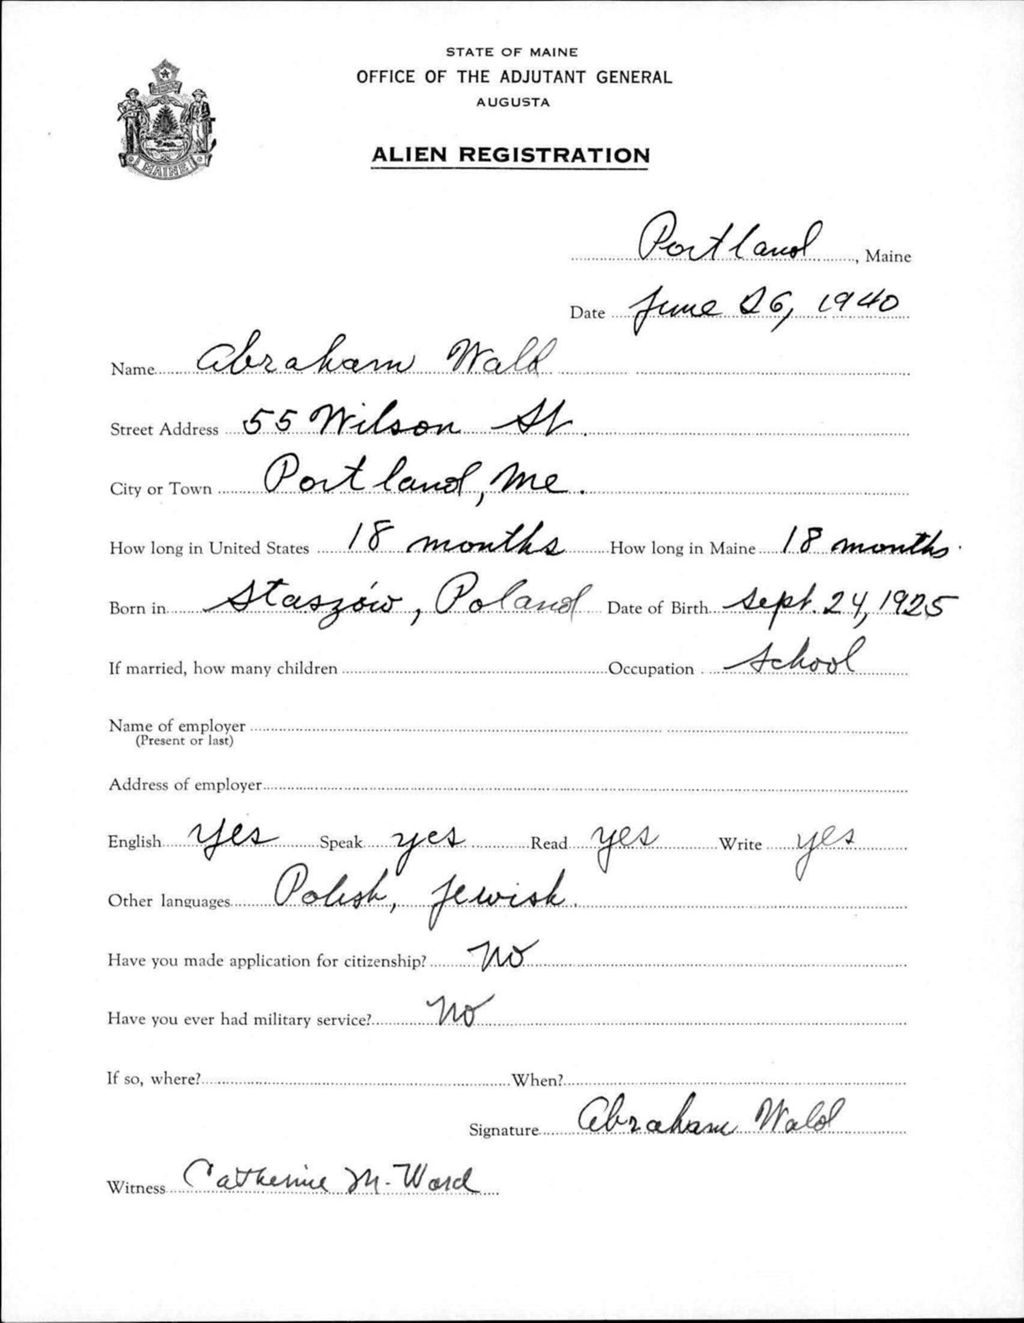 STATE OF MAINE
OFFICE OF THE ADJUTANT GENERAL
AUGUSTA
ALIEN REGISTRATION
MAINE
Portland, Maine
Date June 26, 1940
Name Abraham Wald
Street Address 55 Wilson St.
City or Town Portland, Me.
How long in United States 18 months How long in Maine 18 months.
Born in Staszów, Poland Date of Birth Sept. 24, 1925
If married, how many children Occupation School
Name of employer
(Present or last)
Address of employer
English yes Speak yes Read yes Write yes
Other languages Polish, Jewish.
Have you made application for citizenship? No
Have you ever had military service? No
If so, where? When?
Signature Abraham Wald
Witness Catherine M. Ward